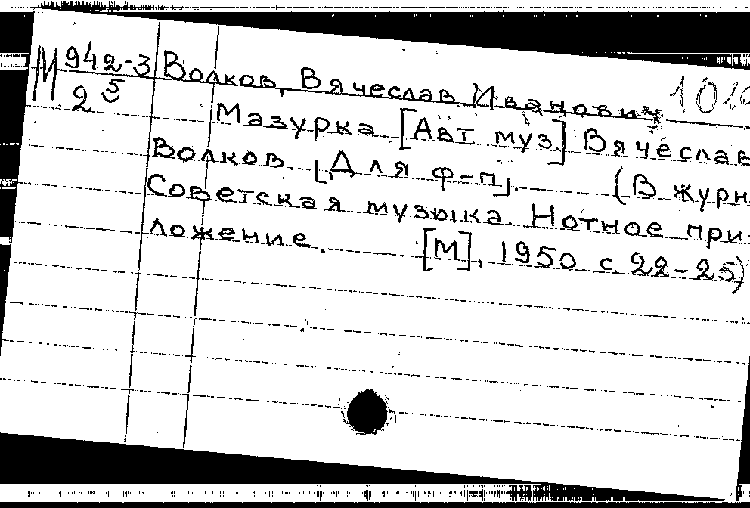 М 942-3 Волков, Вячеслав Иванович
2 5
Мазурка [Авт муз.] Вячеслав
Волков. [Для ф-п]. (В журн
Советская музыка. Нотное при-
ложение. [М], 1950 с 22-25)